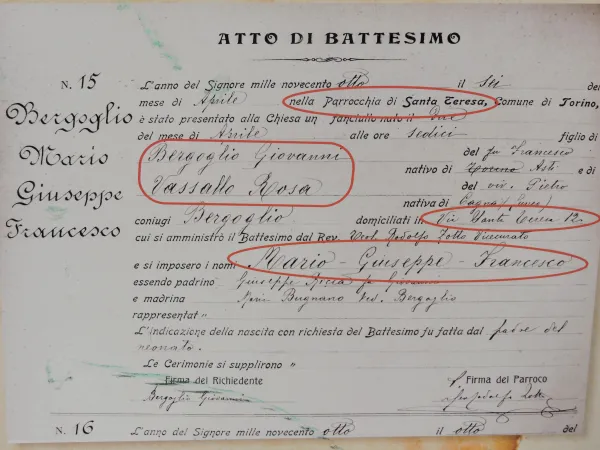 ATTO DI BATTESIMO
N. 15
Bergoglio
Mario
Giuseppe
Francesco
L'anno del Signore mille novecento otto il sei del
mese di Aprile nella Parrocchia di Santa Teresa, Comune di Torino,
è stato presentato alla Chiesa un fanciullo nato il due
del mese di Aprile alle ore sedici figlio di
Bergoglio Giovanni del fu Francesco
nativo di Torino Asti e di
Vassallo Rosa del viv. Pietro
nativa di Cagna
coniugi Bergoglio domiciliati in Via Santa Teresa 12
cui si amministrò il Battesimo dal Rev. Rodolfo Vicecurato
e si imposero i nomi Mario - Giuseppe - Francesco
essendo padrino Giuseppe fu Giovanni
e madrina Maria Bugnano Bergoglio
rappresentati "
L'indicazione della nascita con richiesta del Battesimo fu fatta dal padre del
neonato.
Le Cerimonie si supplirono "
Firma del Richiedente
Bergoglio Giovanni
Firma del Parroco
N. 16 L'anno del Signore mille novecento otto il otto del